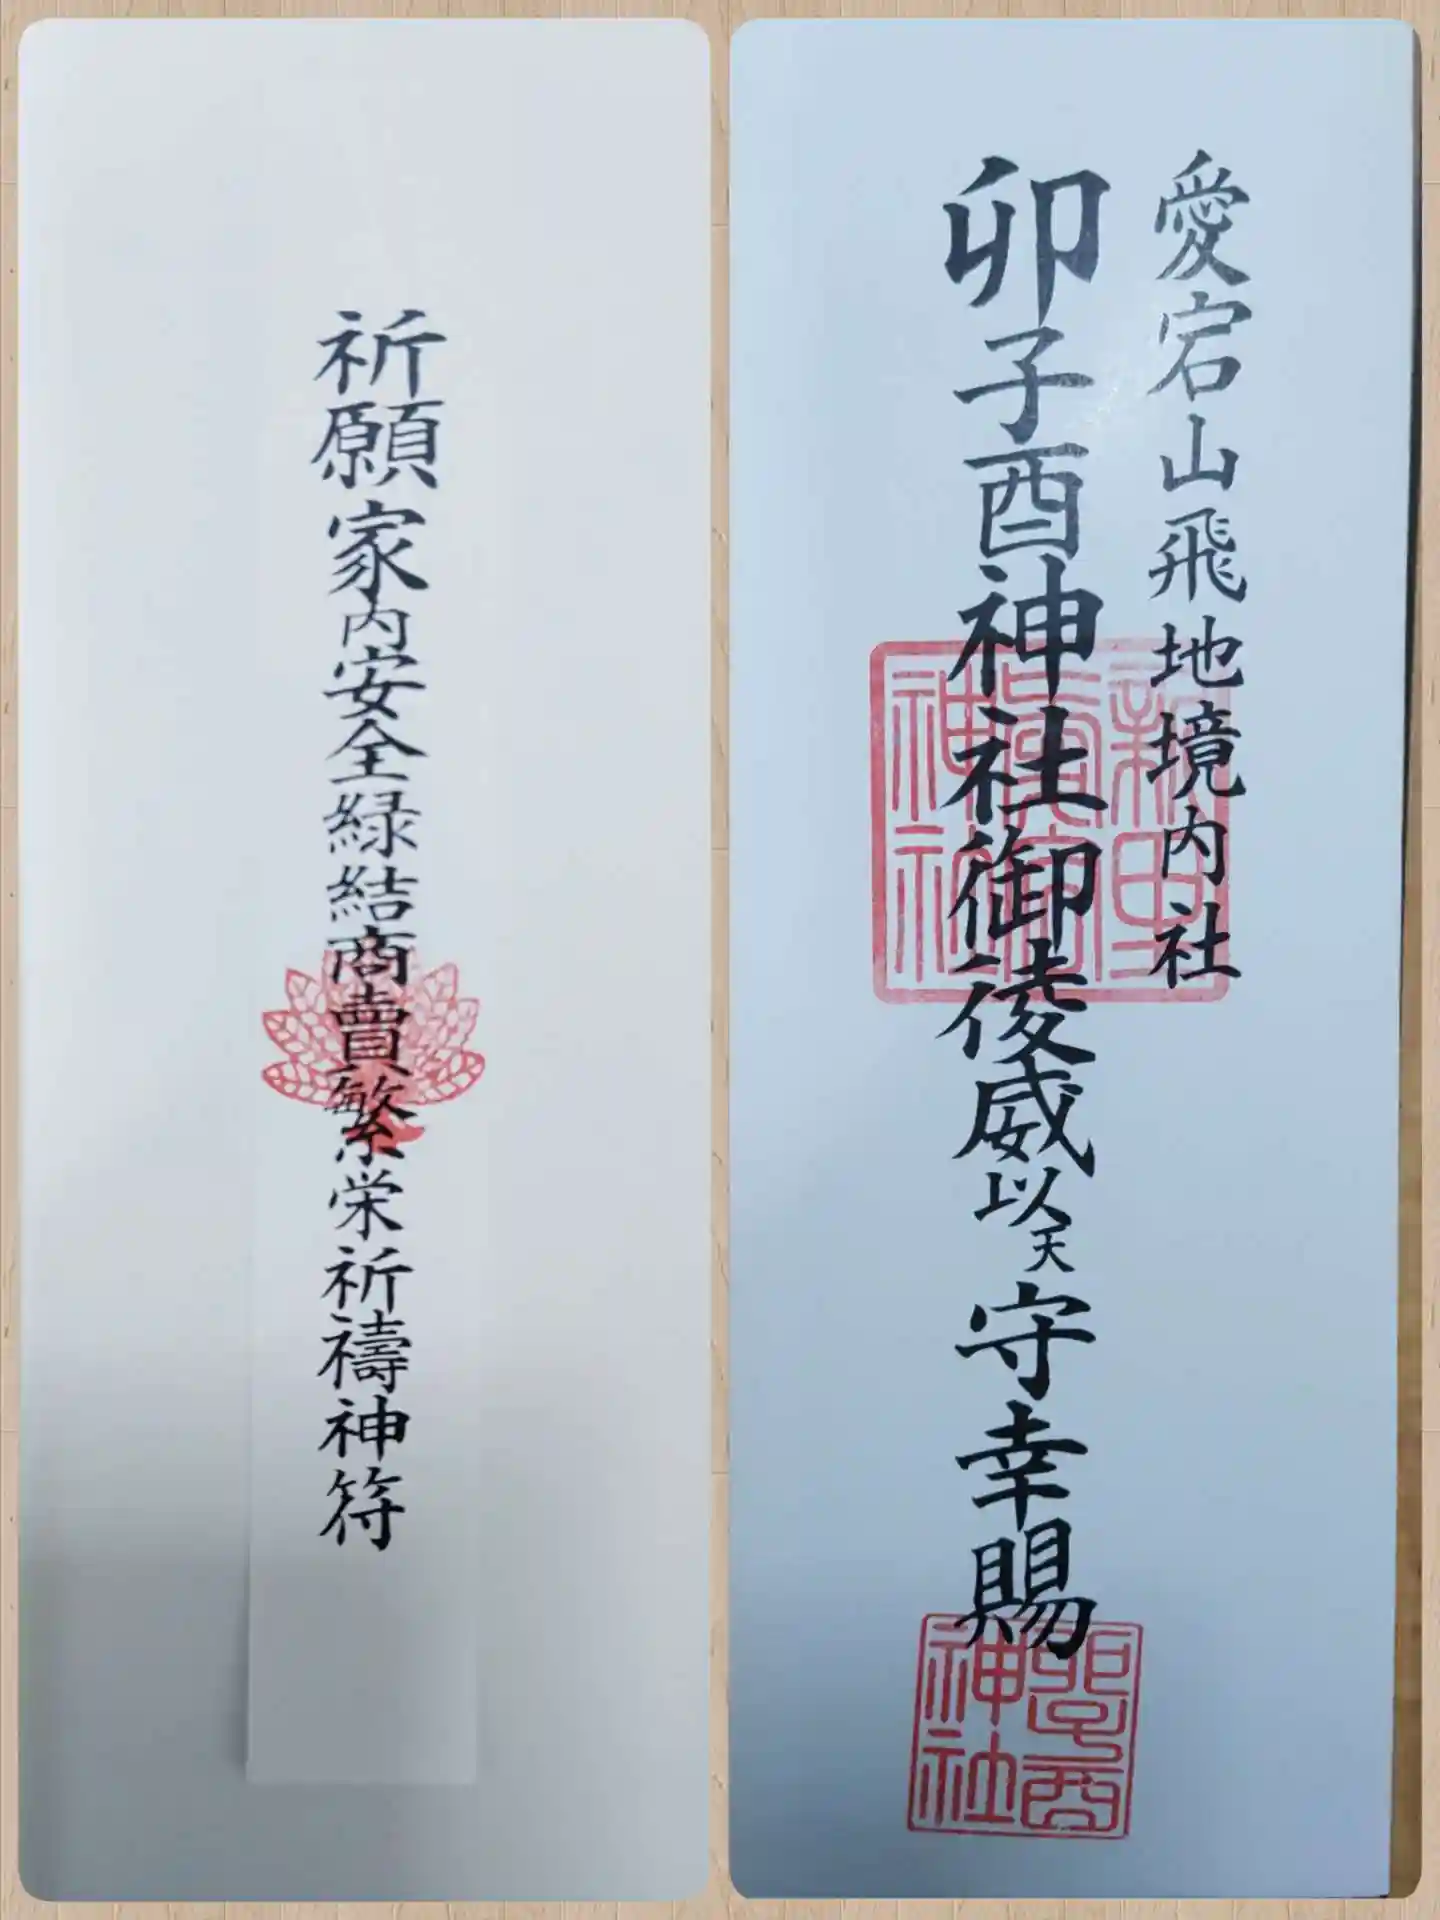 愛宕山飛地境内社
卯子酉神社御稜威以天守幸賜
新里
愛宕
神社
卯子酉
神社
祈願家内安全緑結商賣繁栄祈禱神符